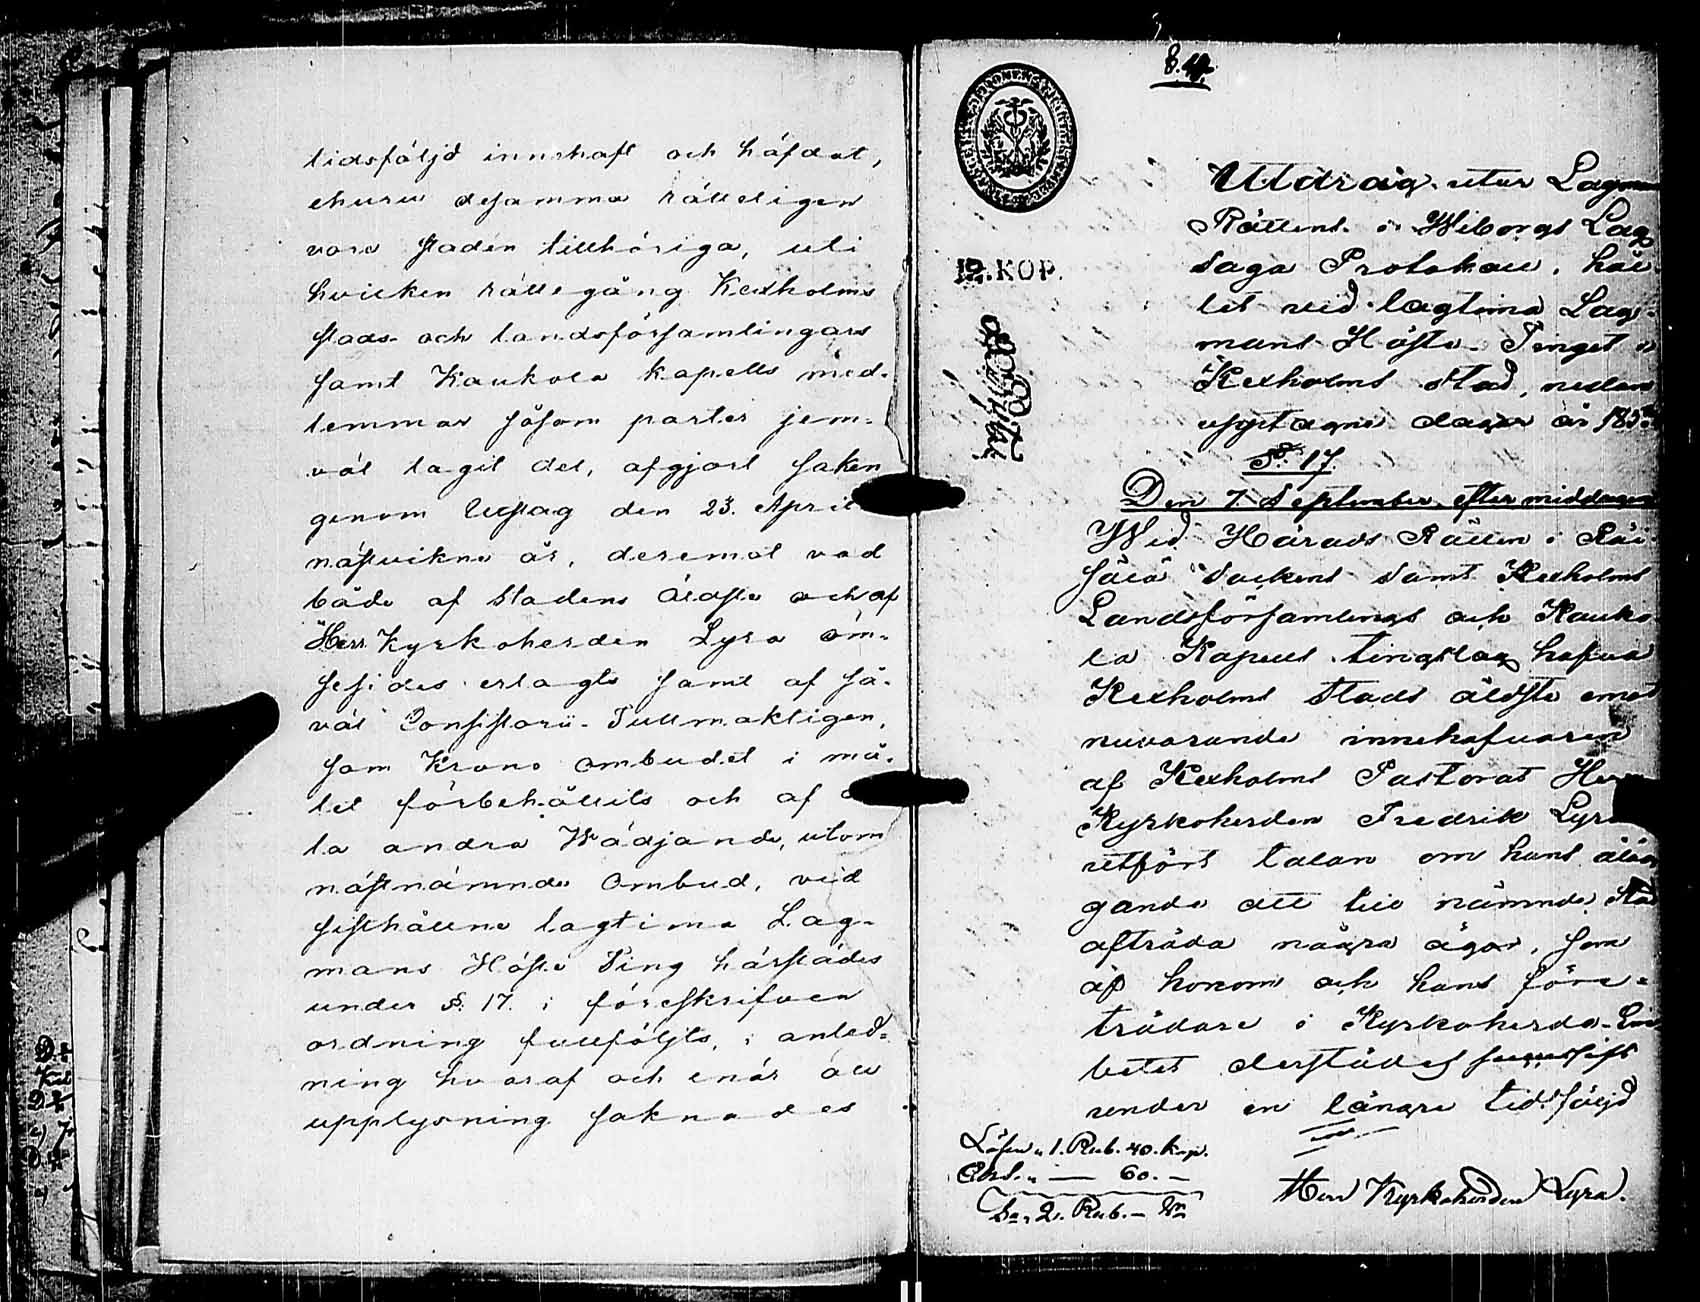 tidsföljd innehaft och häfdat,
ehuru desamma rätteligen
vore staden tillhöriga, uti
hvilken rättegång Kexholms
stads- och landsförsamlingars
samt Kaukola kapells med-
lemmar såsom parter jem-
väl tagit del, afgjort saken
genom Utslag den 23. April
nästvikne år, deremot vad
både af Stadens Äldste och af
Herr Kyrkoherden Lyra öm-
sesides erlagts samt af så-
väl Consistorii-Fullmäktigen,
som Krono ombudet i må-
let förbehållits och af
la andra Wädjande, utom
nästnämnde Ombud, vid
sisthållne lagtima Lag-
mans Höste Ting härstädes
under §. 17. i föreskrifven
ordning fullföljts, i anled-
ning hvaraf och enär all
upplysning saknades
8.
12. KOP.
Utdrag utur Lagmans
Rättens i Wiborgs Lag-
saga Protokoll, hål-
let vid lagtima Lag-
mans Höste-Tinget i
Kexholms stad, nedan
upptagne dagar år 185
§. 17.
Den 7. September eftermiddagen
Wid Härads Rätten i Räi-
sälä Sockens samt Kexholms
Landsförsamlings och Kauko-
la Kapells tingslag hafva
Kexholms Stads äldste emot
nuvarande innehafvaren
af Kexholms Pastorat Herr
Kyrkoherden Fredrik Lyra
utfört talan om hans åläg-
gande att till nämnde Stad
afträda några ägor, som
af honom och hans före-
trädare i Kyrkoherde-Em-
betet derstädes
under en längre tidsföljd
Lösen 1. Rub. 40. kop.
60. —
S:a 2. Rub. —
Herr Kyrkoherden Lyra.